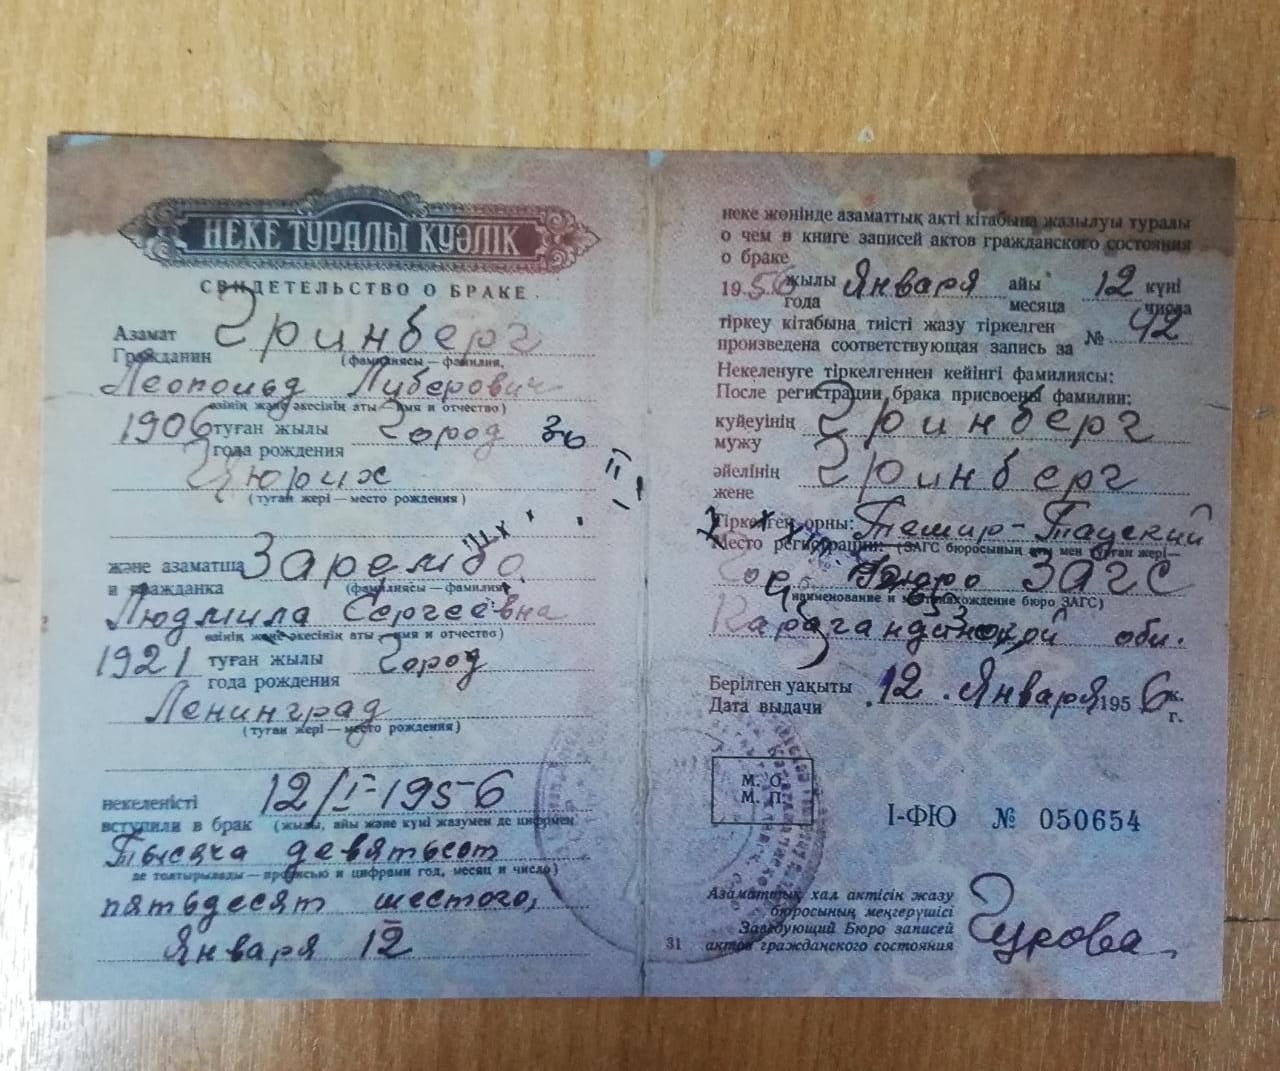 НЕКЕ ТУРАЛЫ КУӘЛІК
СВИДЕТЕЛЬСТВО О БРАКЕ
Азамат
Гражданин
Гринберг
(фамилиясы — фамилия,
Леопольд Луберович
өзінің және әкесінің аты — имя и отчество)
1906 туған жылы
года рождения
Город
Цюрих
(туған жері — место рождения)
және азаматша
и гражданка
Зарембо
(фамилиясы — фамилия,
Людмила Сергеевна
өзінің және әкесінің аты — имя и отчество)
1921 туған жылы
года рождения
Город
Ленинград
(туған жері — место рождения)
некеленісті
вступили в брак
12/I-1956
(жылы, айы және күні жазумен де цифрмен
Тысяча девятьсот
де толтырылады — прописью и цифрами год, месяц и число)
пятьдесят шестого,
Января 12
неке жөнінде азаматтық акті кітабына жазылуы туралы
о чем в книге записей актов гражданского состояния
о браке
1956 жылы года Января айы месяца 12 күні числа
тіркеу кітабына тиісті жазу тіркелген
произведена соответствующая запись за № 42
Некеленуге тіркелгеннен кейінгі фамилиясы:
После регистрации брака присвоены фамилии:
күйеуінің
мужу
Гринберг
әйелінің
жене
Гринберг
Тіркелген орны: Темир-Тауский
Место регистрации: (ЗАГС бюросының аты мен тұрған жері—
Гор. бюро ЗАГС
наименование и местонахождение бюро ЗАГС)
Карагандинской обл.
Берілген уақыты
Дата выдачи
12. Января 1956 ж.
г.
М. О.
М. П.
І-ФЮ № 050654
Азаматтық хал актісін жазу
бюросының меңгерушісі
Заведующий Бюро записей
актов гражданского состояния
31